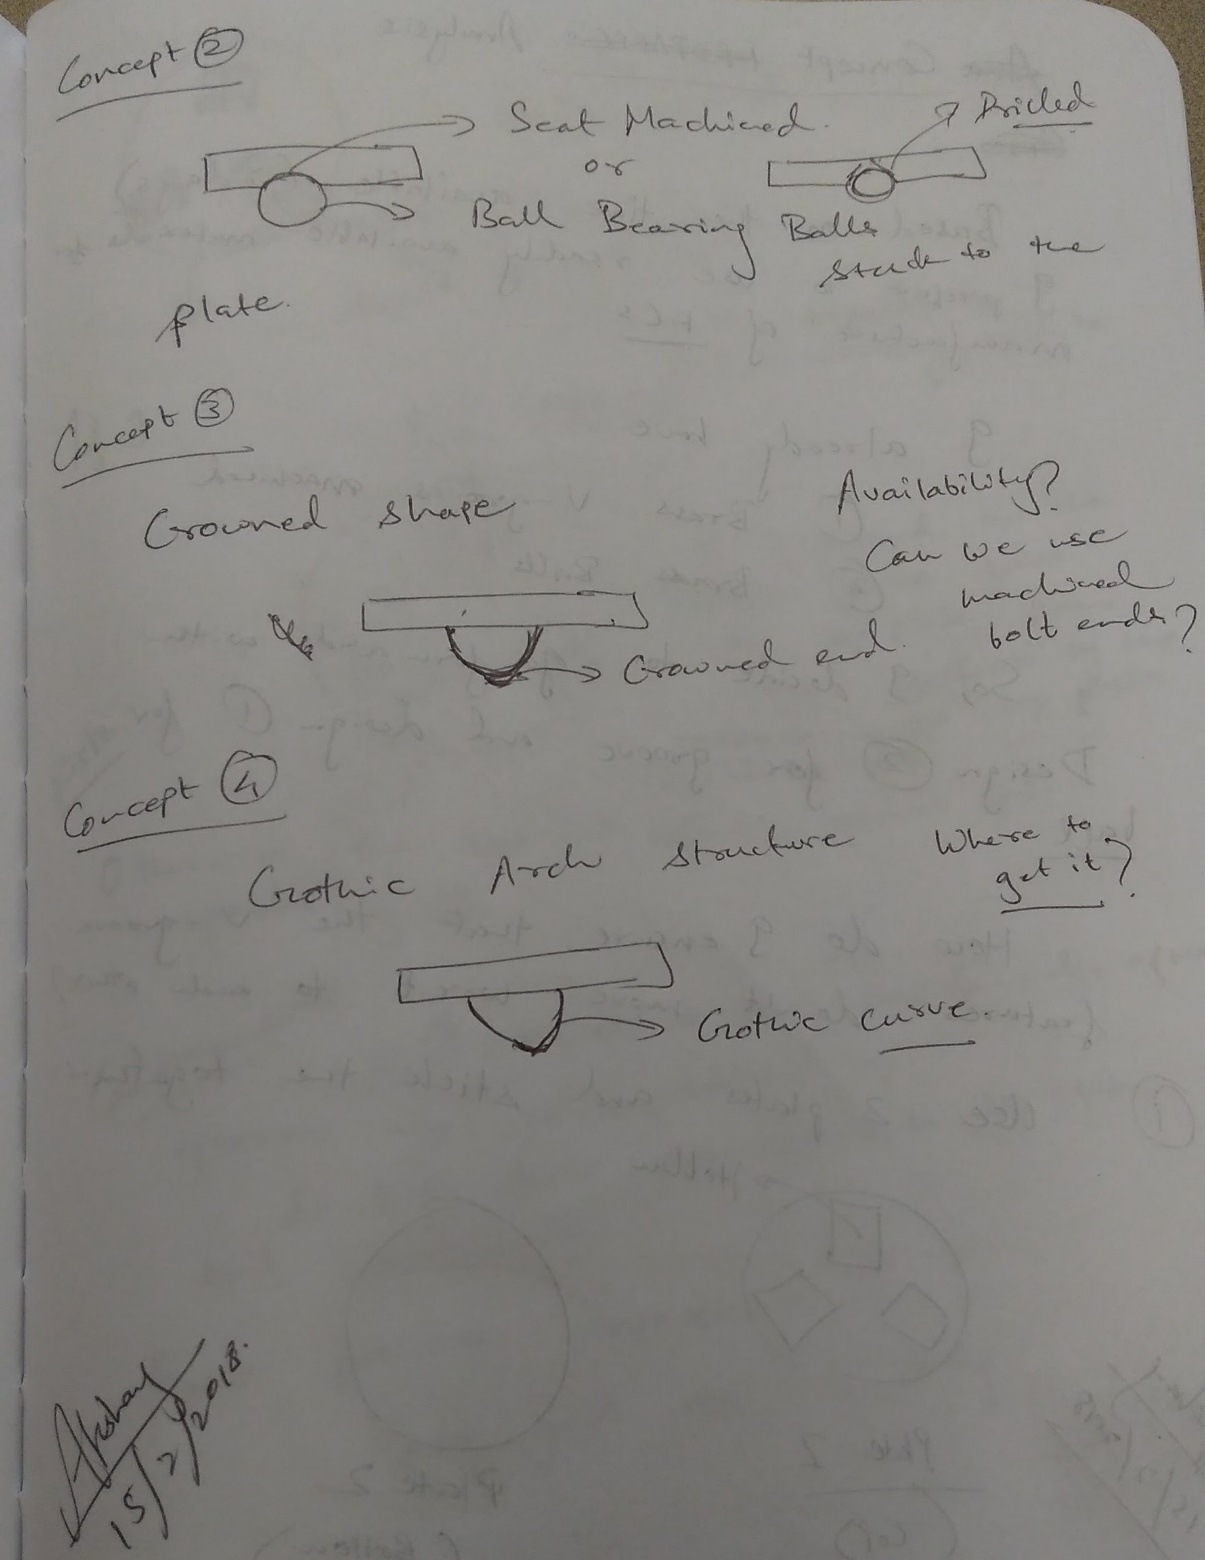 Concept ②
Seat Machined.
or
Drilled
Ball Bearing Balls
stuck to the
plate.
Concept ③
Crowned shape
Availability?
Can we use
machined
bolt ends?
Crowned end.
Concept ④
Gothic Arch Structure
Where to
get it?
Gothic curve.
Akshay
15/2/2018.